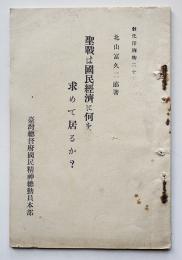 北山富久二郎著
聖戰は國民經濟に何を
求めて居るか？
臺灣總督府國民精神總動員本部